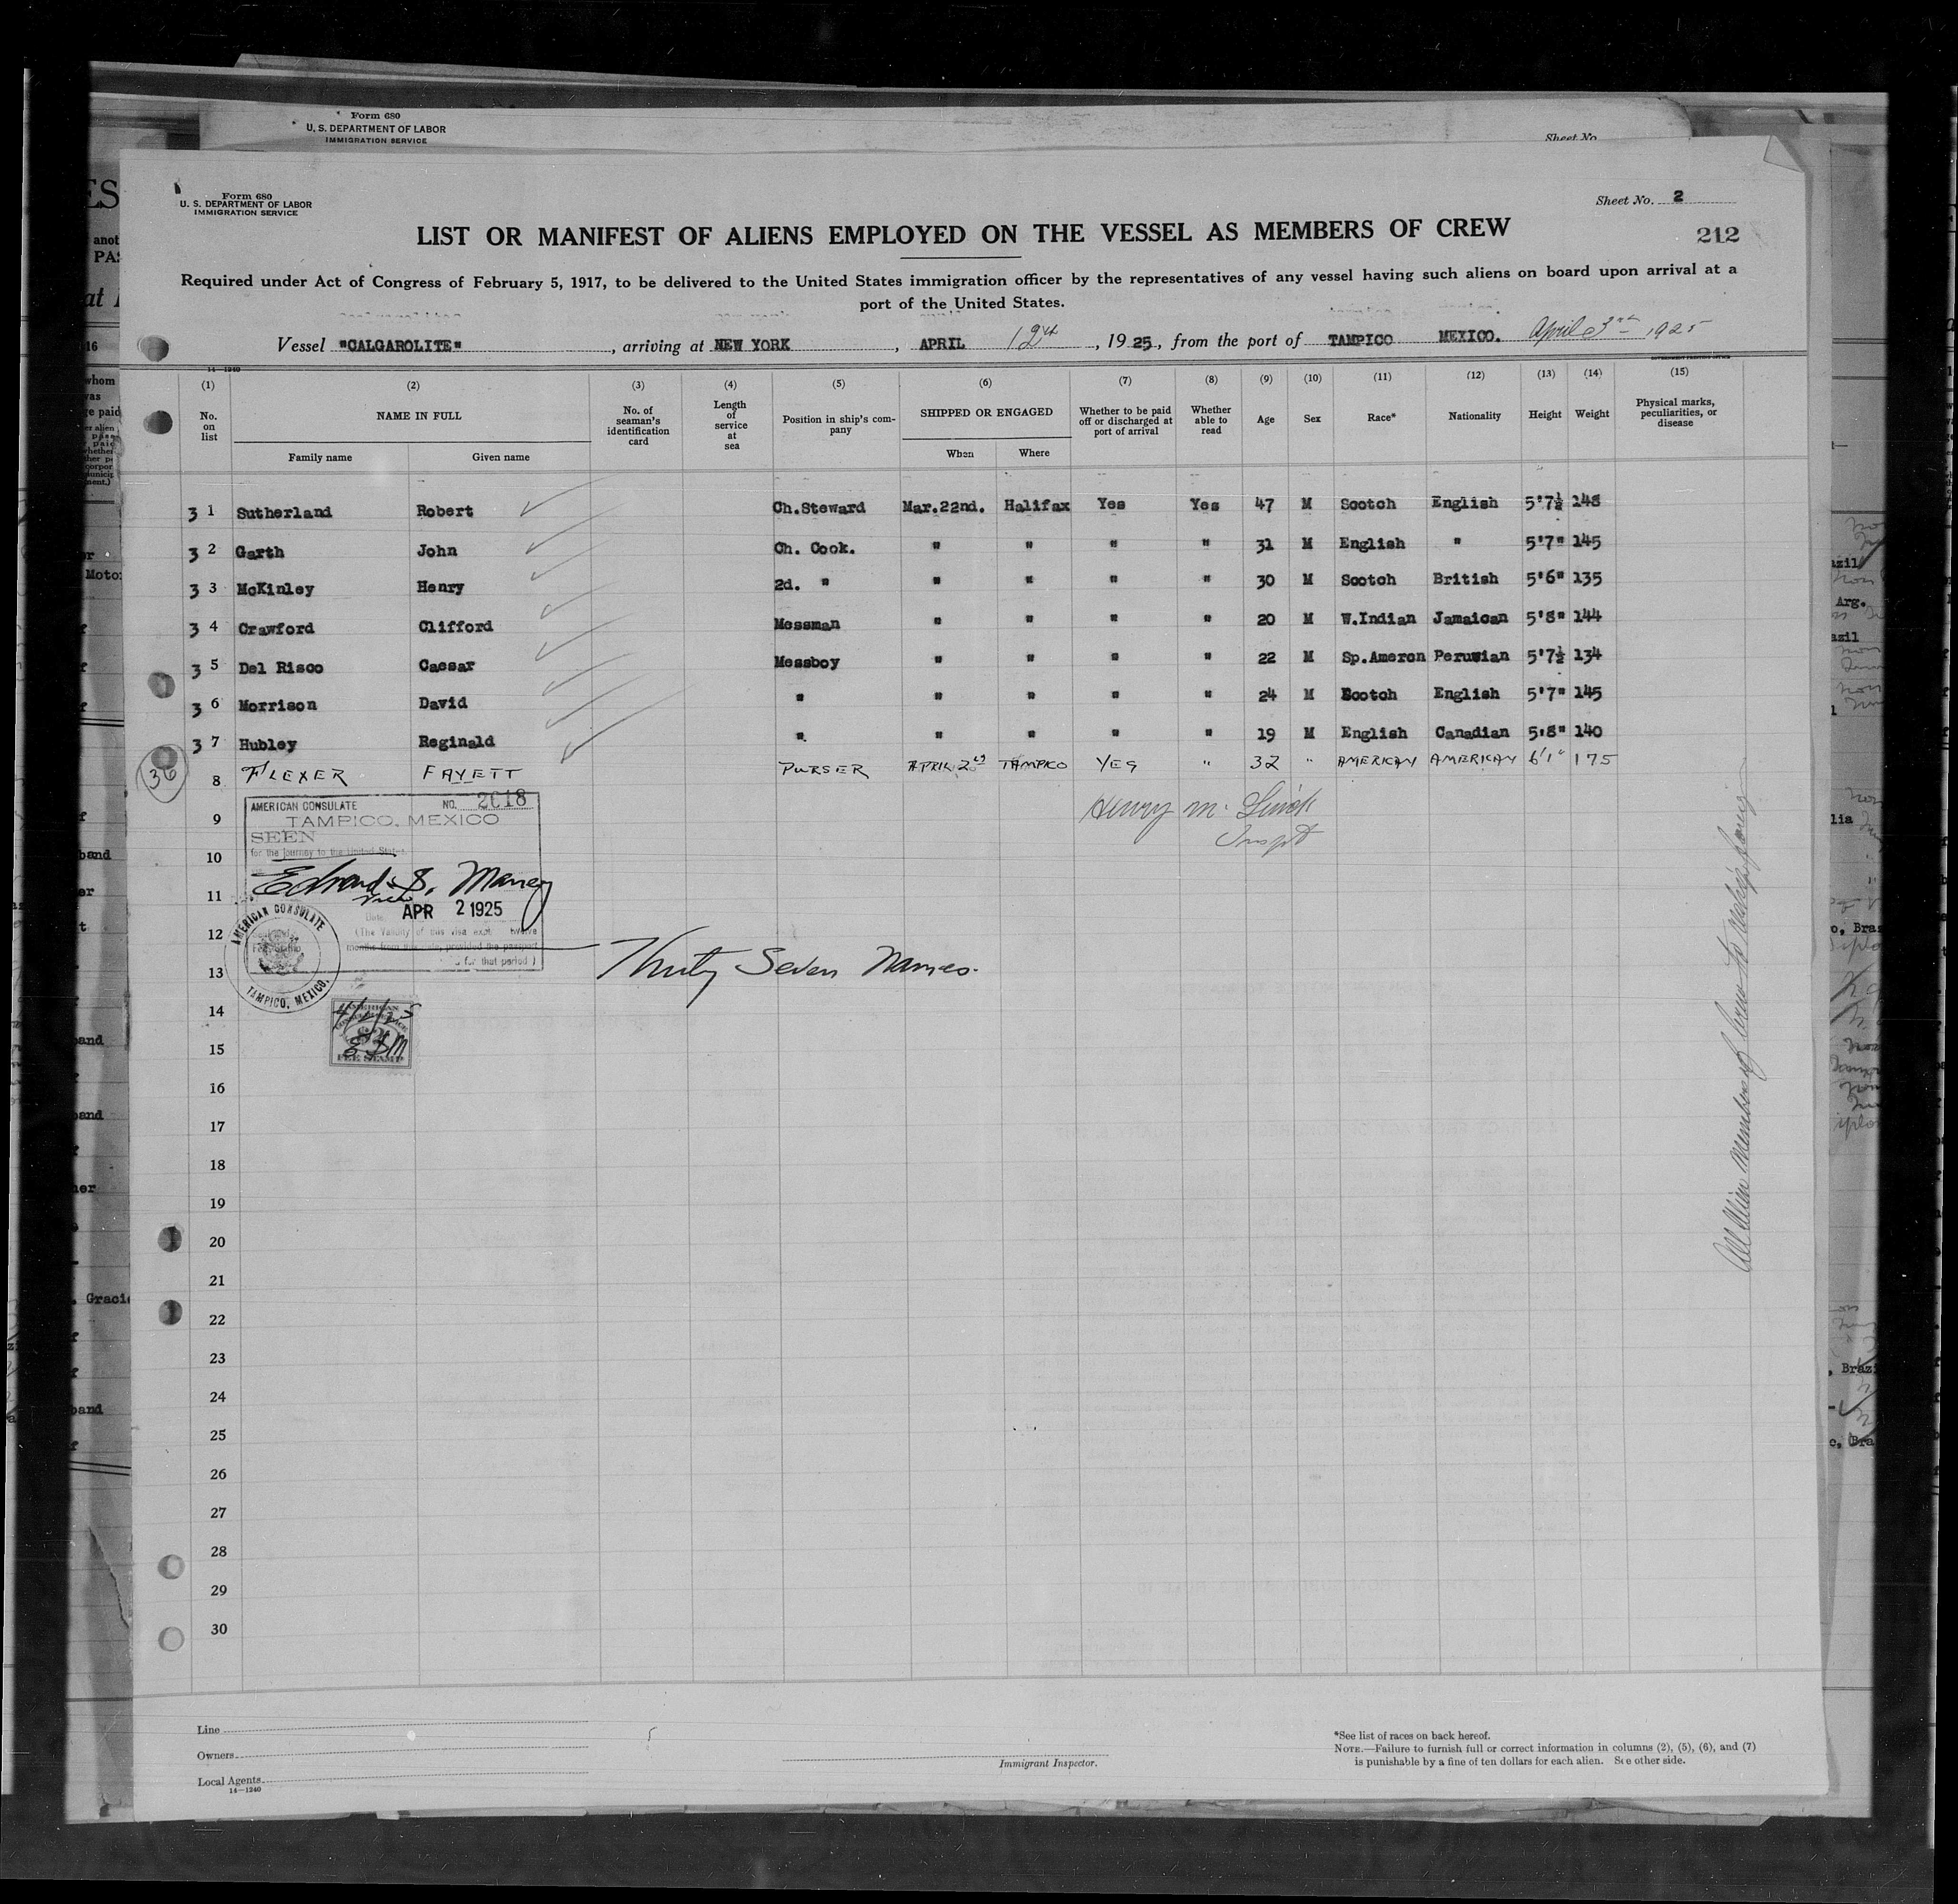 Form 680
U. S. DEPARTMENT OF LABOR
IMMIGRATION SERVICE
Sheet No.
Form 680
U. S. DEPARTMENT OF LABOR
IMMIGRATION SERVICE
Sheet No. 2
LIST OR MANIFEST OF ALIENS EMPLOYED ON THE VESSEL AS MEMBERS OF CREW
212
Required under Act of Congress of February 5, 1917, to be delivered to the United States immigration officer by the representatives of any vessel having such aliens on board upon arrival at a
port of the United States.
Vessel "CALGAROLITE", arriving at NEW YORK, APRIL 12th, 1925, from the port of TAMPICO MEXICO. April 3rd 1925
14—1240
(1) (2) (3) (4) (5) (6) (7) (8) (9) (10) (11) (12) (13) (14) (15)
No. on list NAME IN FULL No. of seaman's identification card Length of service at sea Position in ship's company SHIPPED OR ENGAGED Whether to be paid off or discharged at port of arrival Whether able to read Age Sex Race* Nationality Height Weight Physical marks, peculiarities, or disease
Family name Given name When Where
3 1 Sutherland Robert Ch.Steward Mar.22nd. Halifax Yes Yes 47 M Scotch English 5'7½ 148
3 2 Garth John Ch. Cook. " " " " 31 M English " 5'7" 145
3 3 McKinley Henry 2d. " " " " " 30 M Scotch British 5'6" 135
3 4 Crawford Clifford Messman " " " " 20 M W.Indian Jamaican 5'8" 144
3 5 Del Risco Caesar Messboy " " " " 22 M Sp.Ameron Peruvian 5'7½ 134
3 6 Morrison David " " " " " 24 M Scotch English 5'7" 145
3 7 Hubley Reginald " " " " " 19 M English Canadian 5'8" 140
36
8 FLEXER FAYETT PURSER APRIL 2nd TAMPICO YES " 32 " AMERICAN AMERICAN 6'1" 175
9
AMERICAN CONSULATE NO. 2018
TAMPICO, MEXICO
SEEN
for the journey to the United States
Henry M.
Inspt
10
Edward S. Maney
11
Vice
Date APR 2 1925
12
(The Validity of this visa expires twelve
months from this date, provided the passport
for that period)
13
AMERICAN CONSULATE
TAMPICO, MEXICO.
Thirty Seven Names.
14
FEE STAMP
ESM
15
16
17
18
19
20
21
22
23
24
25
26
27
28
29
30
All Alien Members of Crew to
Line
Owners
Local Agents
14—1240
Immigrant Inspector.
*See list of races on back hereof.
NOTE.—Failure to furnish full or correct information in columns (2), (5), (6), and (7)
is punishable by a fine of ten dollars for each alien. See other side.